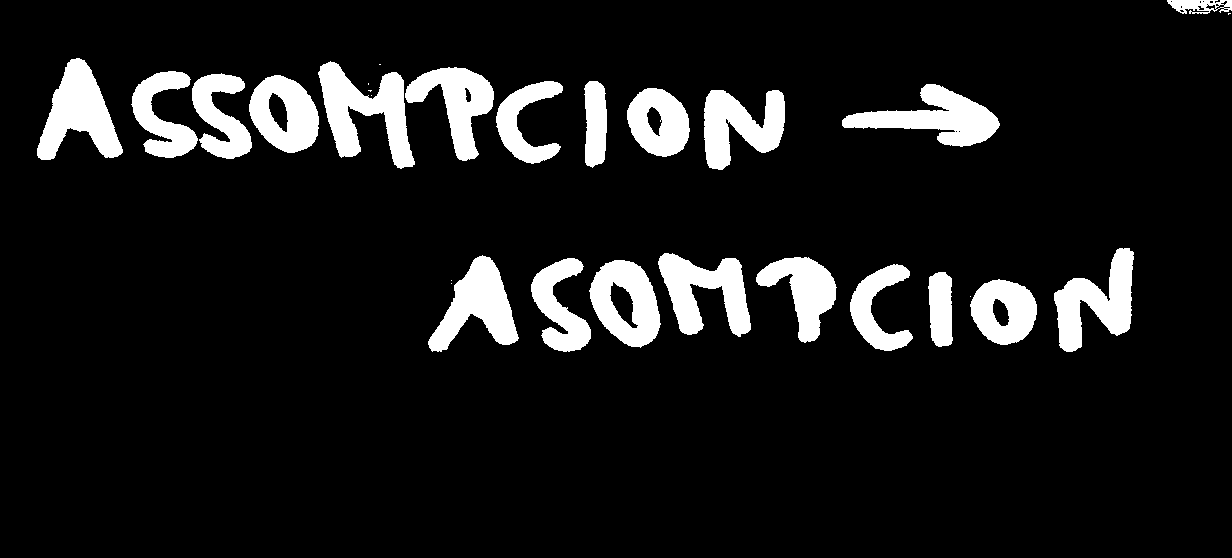 ASSOMPCION →
ASOMPCION